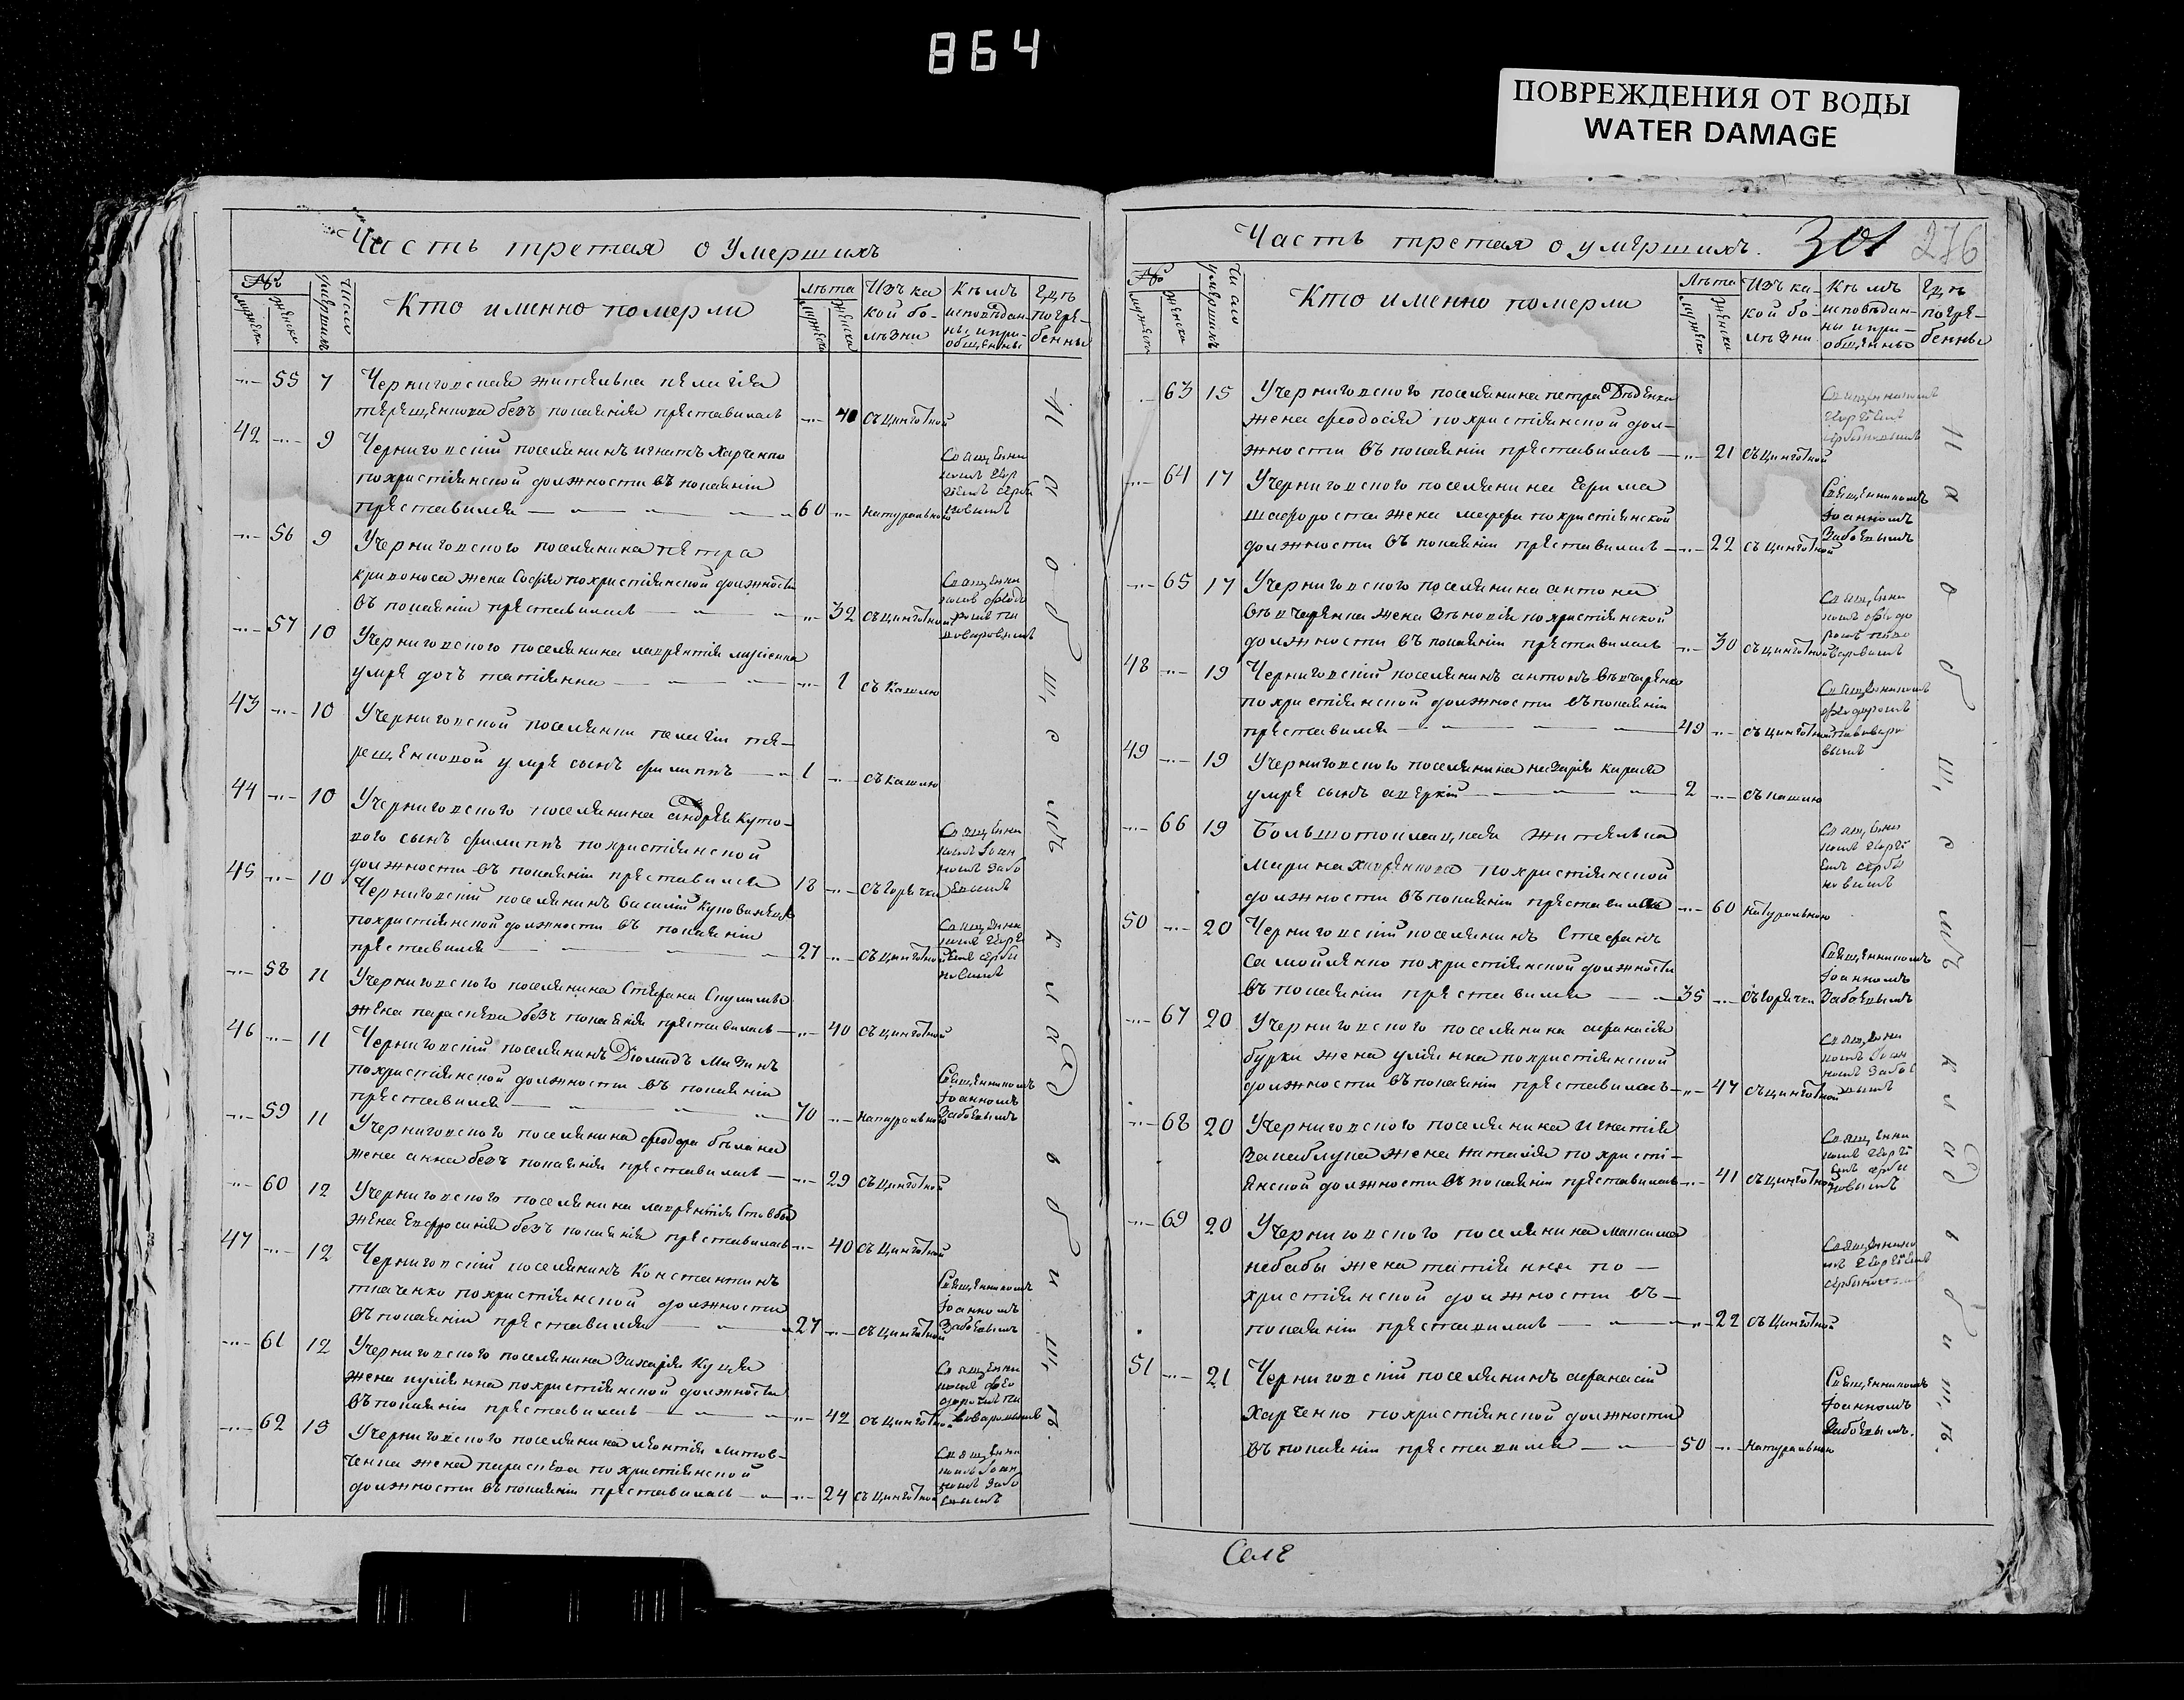 864
ПОВРЕЖДЕНИЯ ОТ ВОДЫ
WATER DAMAGE
Часть третая о Умершихъ
№
мужеска
женска
Число умершихъ
Кто именно померли
лѣта
мужеска
женска
Изъ ка
кой бо-
лѣзни
Кѣмъ
исповѣдан-
ны и при-
общенны
Гдѣ
погре-
бенны
55 7 Черниговская жителька пелагія
терещенкова безъ покаянія преставилась 40 съ цинготной
42 9 Черниговскій поселянинъ игнатъ Харченко
похристіянской должности въ покаяніи
преставился 60 натурально
Священни
комъ Геор
гіемъ Серби
новымъ
56 9 У черниговского поселянина петра
кривоноса жена Софія похристіянской должности
въ покаяніи преставилась 32 съ цинготной
57 10 У черниговского поселянина лаврентія
умре дочь татіянна 1 съ кашлю
43 10 У черниговской поселянки пелагіи те-
рещенковой умре сынъ филиппъ 1 съ кашлю
44 10 У черниговского поселянина андрея Куто-
вого сынъ филиппъ похристіянской
должности въ покаяніи преставился 18 съ горячки
Священни
комъ Іоан
номъ Забо
евымъ
45 10 Черниговскій поселянинъ Василій
похристіянской должности въ покаяніи
преставился 27 съ цинготной
58 11 У черниговского поселянина Стефана
жена параскева безъ покаянія преставилась 40 съ цинготной
46 11 Черниговскій поселянинъ Діомидъ Мизинъ
похристіянской должности въ покаяніи
преставился 70 натурально
Священникомъ
Іоанномъ
Забоевымъ
59 11 У черниговского поселянина феодора
жена анна безъ покаянія преставилась 29 съ цинготной
60 12 У черниговского поселянина лаврентія
жена Евфросинія безъ покаянія преставилась 40 съ цинготной
47 12 Черниговскій поселянинъ Константинъ
ткаченко похристіянской должности
въ покаяніи преставился 27 съ цинготной
Священникомъ
Іоанномъ
Забоевымъ
61 12 У черниговского поселянина Захарія Куцая
жена иуліянна похристіянской должности
въ покаяніи преставилась 42 съ цинготной
62 15 У черниговского поселянина леонтія литов-
ченка жена параскева похристіянской
должности въ покаяніи преставилась 24 съ цинготной
Священни
комъ Іоан
номъ Забо
евымъ
На общемъ кладбищѣ.
Часть третая о умершихъ. 301 276
№
мужеска
женска
Число умершихъ
Кто именно померли
Лѣта
мужеска
женска
Изъ ка-
кой бо-
лѣзни
Кѣмъ
исповѣдан-
ны и при-
общенны
Гдѣ
погре-
бенны
63 15 У черниговского поселянина петра Дѣденка
жена феодосія похристіянской дол-
жности въ покаяніи преставилась 21 съ цинготной
Священникомъ
Георгіемъ
Сербиновымъ
64 17 У черниговского поселянина Ефима
шафороста жена марфа похристіянской
должности въ покаяніи преставилась 22 съ цинготной
Священникомъ
Іоанномъ
Забоевымъ
65 17 У черниговского поселянина антона
жена Зѣновія похристіянской
должности въ покаяніи преставилась 30 съ цинготной
48 19 Черниговскій поселянинъ антонъ
похристіянской должности въ покаяніи
преставился 49 съ цинготной
49 19 У черниговского поселянина назарія карася
умре сынъ аверкій 2 съ кашлю
66 19 Большотокмацкая жителька
Марина похристіянской
должности въ покаяніи преставилась 60 натурально
Священни
комъ Георгі
емъ Серби
новымъ
50 20 Черниговскій поселянинъ Стефанъ
Самойленко похристіянской должности
въ покаяніи преставился 35 съ горячки
Священникомъ
Іоанномъ
Забоевымъ
67 20 У черниговского поселянина афанасія
бурки жена уліянна похристіянской
должности въ покаяніи преставилась 47 съ цинготной
Священни
комъ Іоан
номъ Забое
вымъ
68 20 У черниговского поселянина игнатія
Запаблука жена наталія похристі-
янской должности въ покаяніи преставилась 41 съ цинготной
Священни
комъ Георгі
емъ Серби
новымъ
69 20 У черниговского поселянина максима
небабы жена татіянна по-
христіянской должности въ-
покаяніи преставилась 22 съ цинготной
51 21 Черниговскій поселянинъ афанасій
Харченко похристіянской должности
въ покаяніи преставился 50 натурально
Священникомъ
Іоанномъ
Забоевымъ.
На общемъ кладбищѣ.
Селе